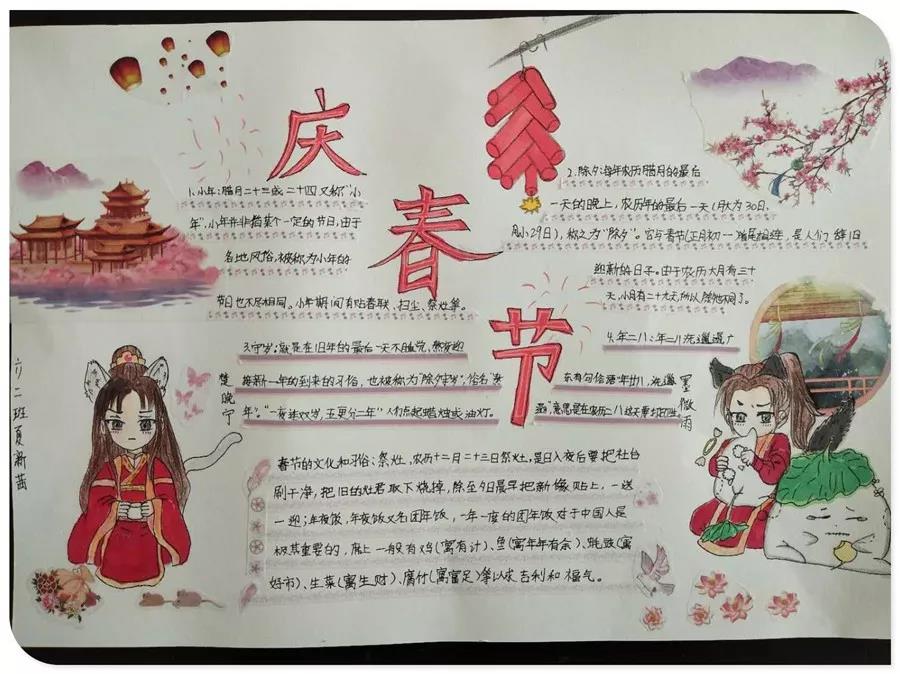 庆春节
1.小年:腊月二十三或二十四又称"小
年",小年并非指某个一定的节日,由于
各地风俗,被称为小年的
节日也不尽相同。小年期间有贴春联、扫尘、祭灶等。
2.除夕:每年农历腊月的最后
一天的晚上,农历年的最后一天(月大为30日,
月小29日),称之为"除夕"。它与春节(正月初一)首尾相连,是人们辞旧
迎新的日子。由于农历大月有三十
天,小月有二十九天,所以
3.守岁:就是在旧年的最后一天不睡觉,熬夜迎
接新一年的到来的习俗,也被称为"除夕守岁",俗名"熬
年"。"一夜连双岁,五更分二年"人们点起蜡烛或油灯。
4.年二八:年二八洗邋遢广
东有句俗语"年廿八,洗邋
遢"意思是在农历二八这天要
春节的文化和习俗:祭灶,农历十二月二十三日祭灶,是日入夜后要把灶台
刷干净,把旧的灶君取下烧掉,除至夕日晨早把新像贴上,一送
一迎;年夜饭,年夜饭又名团年饭,一年一度的团年饭对于中国人是
极其重要的,席上一般有鸡(寓有计)、鱼(寓年年有余)、蚝豉(寓
好市)、生菜(寓生财)、腐竹(寓富足)等以求吉利和福气。
楚晚宁
墨微雨
六二班夏新茜